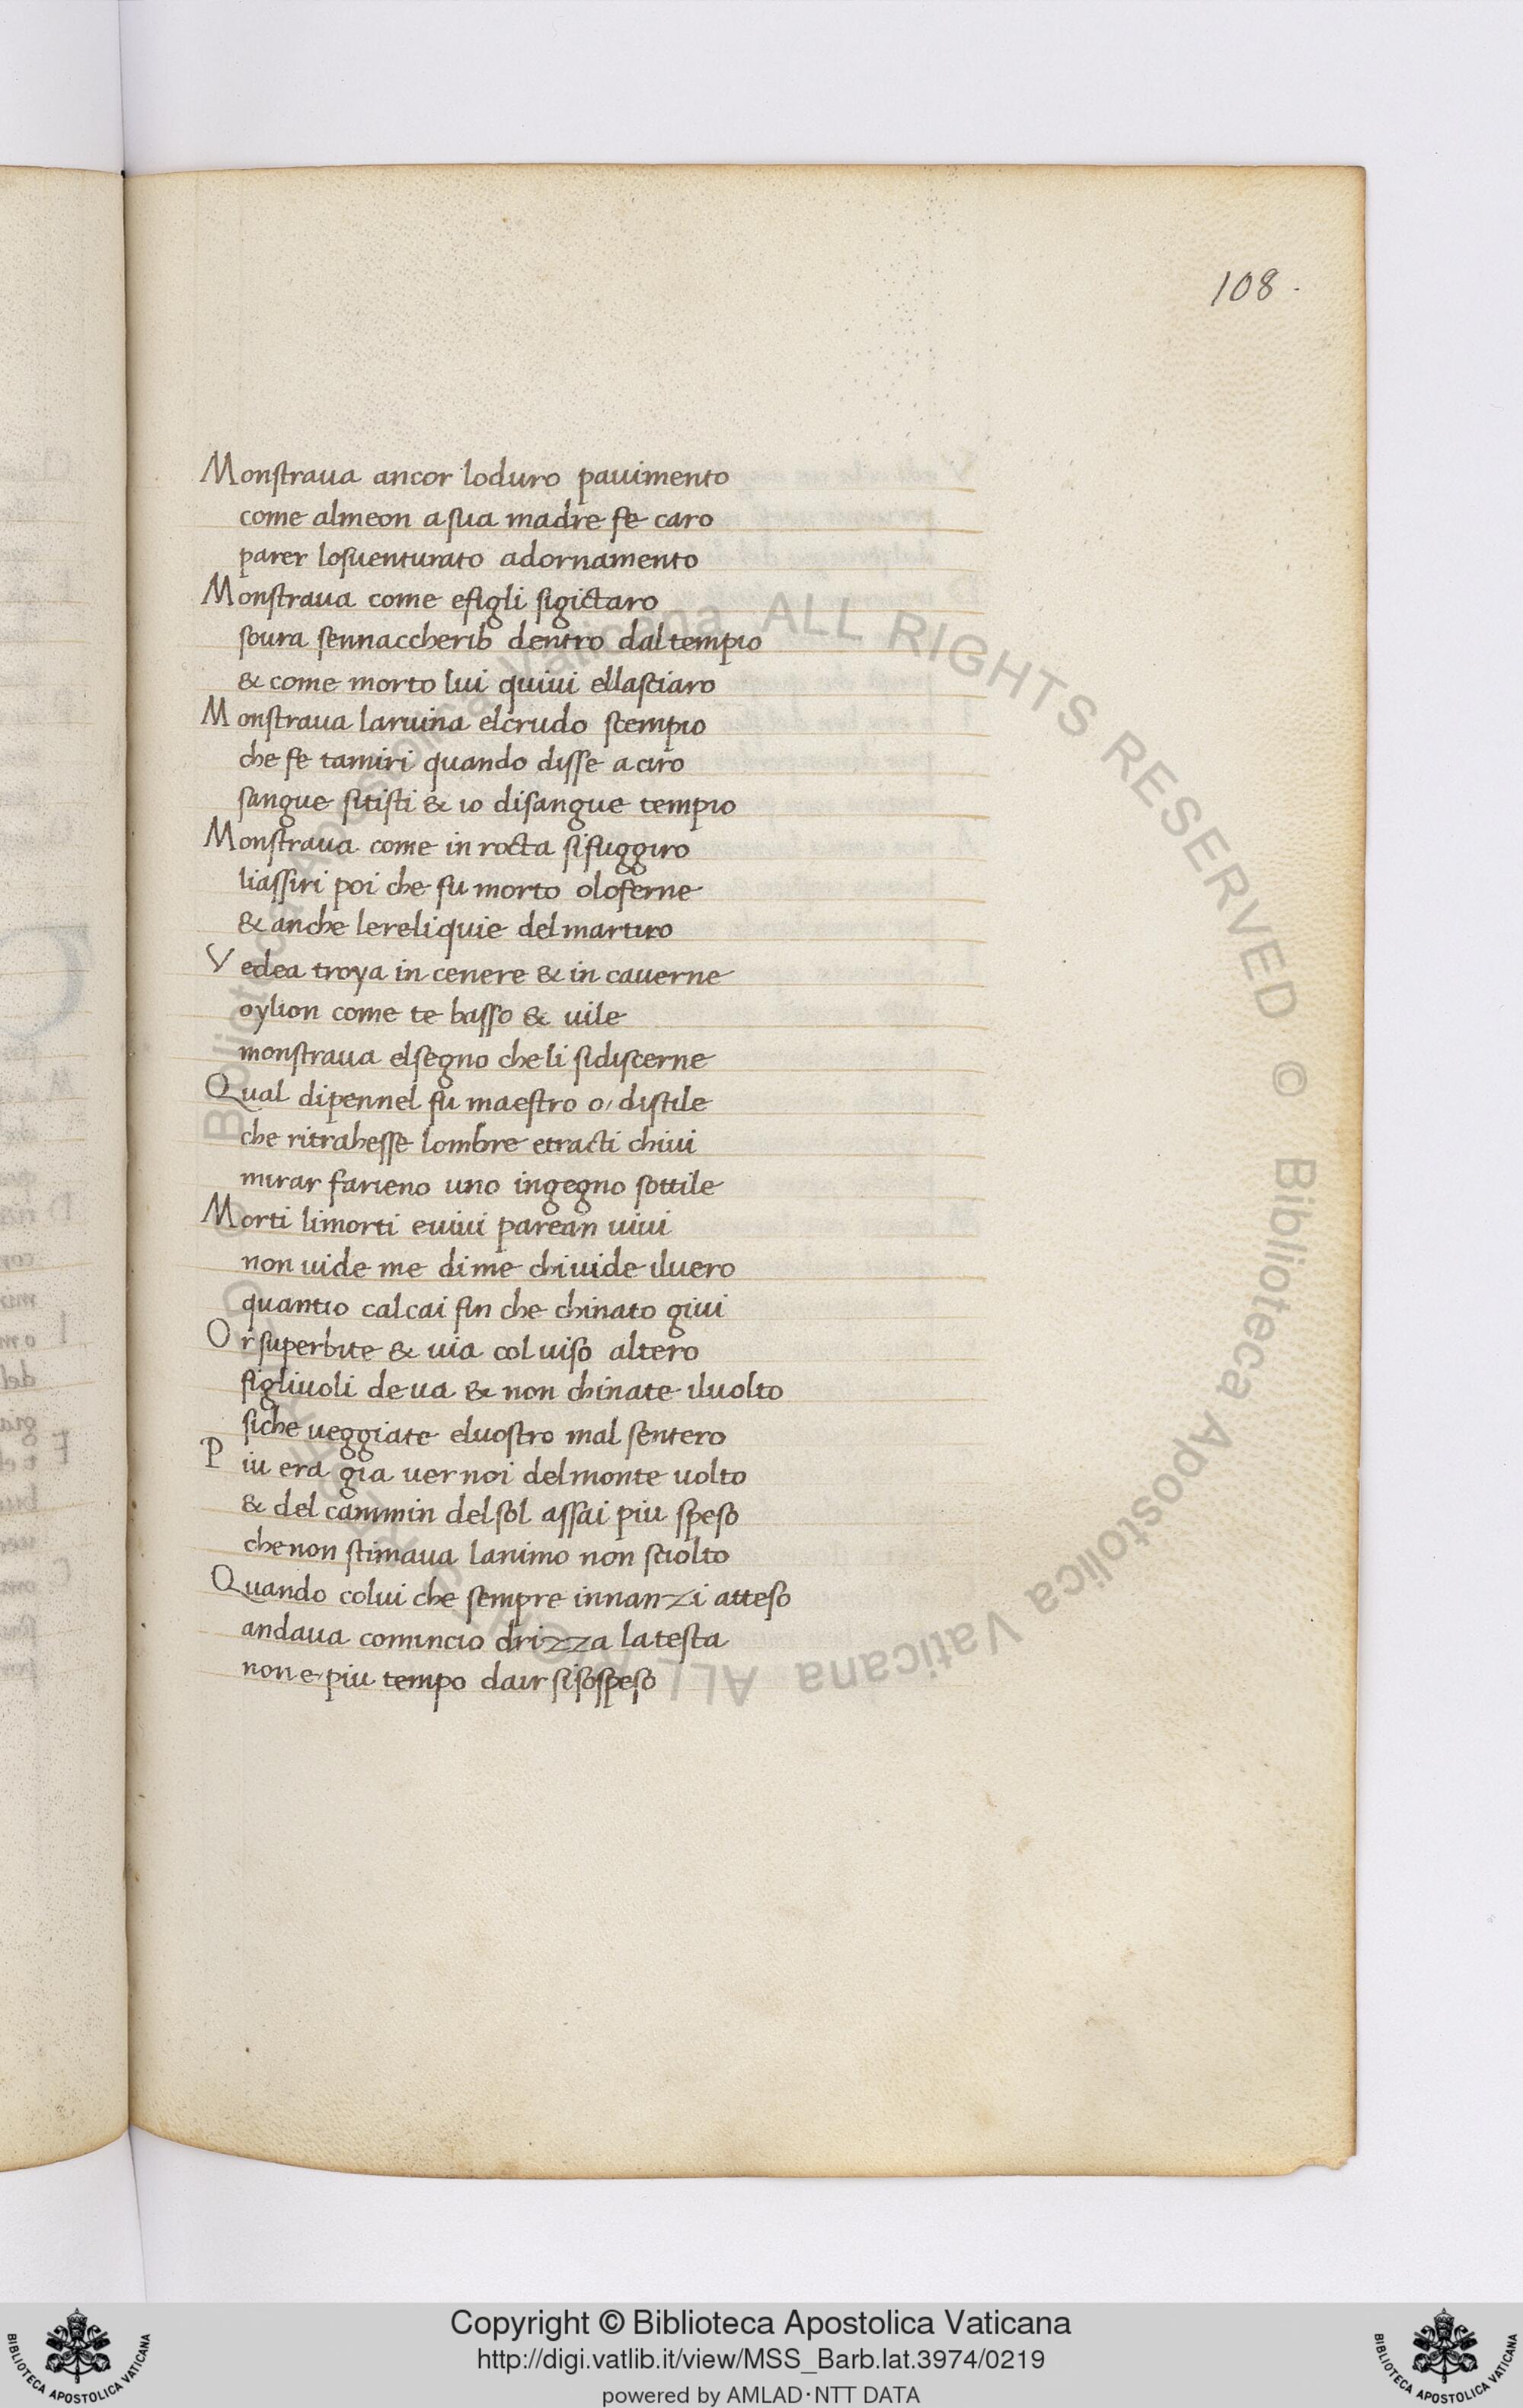 108.
Monstraua ancor loduro pauimento
come almeon asua madre fe caro
parer losuenturato adornamento
Monstraua come efigli sigictaro
soura sennaccherib dentro daltempio
& come morto lui quiui ellasciaro
Monstraua laruina elcrudo scempio
che fe tamiri quando disse aciro
sangue sitisti & io disangue tempio
Monstraua come in rocta sifuggiro
liassiri poi che fu morto oloferne
& anche lereliquie delmartiro
Vedea troya in cenere & in cauerne
oylion come te basso & uile
monstraua elsegno cheli sidiscerne
Qual dipennel fu maestro o, distile
che ritrahesse lombre etracti chiui
mirar farieno uno ingegno sottile
Morti limorti euiui parean uiui
non uide me dime chiuide iluero
quantio calcai fin che chinato giui
Or superbite & uia coluiso altero
figliuoli deua & non chinate iluolto
siche ueggiate eluostro mal sentero
Piu era gia uer noi delmonte uolto
& del cammin delsol assai piu speso
chenon stimaua lanimo non sciolto
Quando colui che sempre innanzi atteso
andaua comincio drizza latesta
non e piu tempo dair sisospeso
Biblioteca Apostolica Vaticana ALL RIGHTS RESERVED © Biblioteca Apostolica Vaticana ALL RIGHTS RESERVED ©
Copyright © Biblioteca Apostolica Vaticana
http://digi.vatlib.it/view/MSS_Barb.lat.3974/0219
powered by AMLAD·NTT DATA
BIBLIOTECA APOSTOLICA VATICANA
BIBLIOTECA APOSTOLICA VATICANA